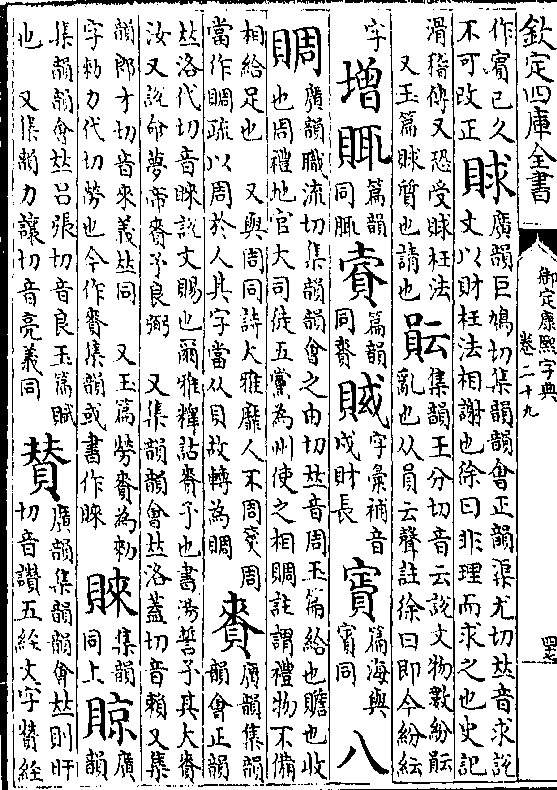 欽定四庫全書
御定康熙字典
卷二十九
作賓已久
不可改正
賕
廣韻巨鳩切集韻韻會正韻渠尤切𠀤音求說
文以財枉法相謝也徐曰非理而求之也史記
滑稽傳又恐受賕枉法
又玉篇賕質也請也
䫟
集韻王分切音云說文物數紛䫟
亂也从員云聲註徐曰即今紛紜
字
增
篇韻
篇韻
同賚
字彙補音
戍財長
篇海與
賓同
八
賙
廣韻職流切集韻韻會之由切𠀤音周玉篇給也贍也收
也周禮地官大司徒五黨為州使之相賙註謂禮物不備
相給足也 又與周同詩大雅靡人不周箋周
當作賙疏以周於人其字當从貝故轉為賙
賚
廣韻集韻
韻會正韻
𠀤洛代切音睞說文賜也爾雅釋詁賚予也書湯誓予其大賚
汝又說命夢帝賚予良弼 又集韻韻會𠀤洛蓋切音賴又集
韻郎才切音來義𠀤同 又玉篇勞賚為勑
字勑力代切勞也今作賚集韻或書作䝱
䝱
集韻
同上
䝶
廣
韻
集韻韻會𠀤呂張切音良玉篇賦
也 又集韻力讓切音亮義同
賛
廣韻集韻韻會𠀤則旰
切音讚五經文字賛經